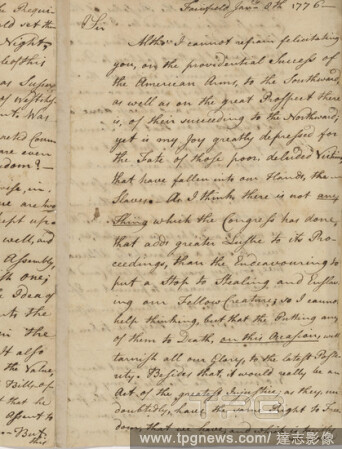 Fairfield Jany. 8th 1776—
Sir
Altho' I cannot refrain felicitating
you, on the providential Success of
the American Arms, to the Southward,
as well as on the great Prospect there
is, of their succeeding to the Northward,
yet is my Joy greatly depressed for
the Fate of those poor deluded
that have fallen into our Hands, the
Slaves. As I think there is not any
thing which the Congress has done,
that adds greater Lustre to its Pro-
ceedings, than the Endeavouring to
put a Stop to Stealing and Enslav
ing our Fellow Creatures; so I cannot
help thinking, but that the Putting any
of them to Death, on this Occasion, will
tarnish all our Glory, to the latest Poste
rity. Besides that, it would really be an
Act of the greatest Injustice; as they, un
doubtedly, have the same Right to Free
dom, that we have, and
Night
of this
Was
are even
dom?—
are his
well, and
Assembly,
the Idea of
to the
in the
It also
the Value,
that he
Assent to
But
this
TPG
www.tpgnews.com / 達志影像